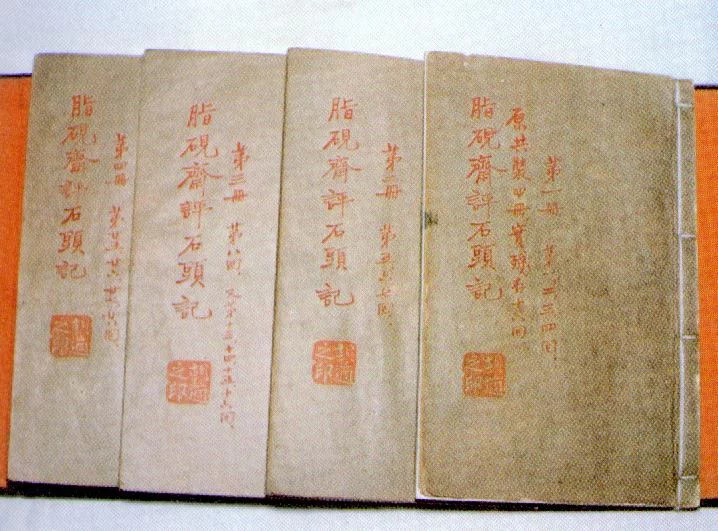 第一冊 第一二三四回
原共裝四冊實殘存十六回
脂硯齋評石頭記
胡適之印
第二冊 第五六七回
脂硯齋評石頭記
胡適之印
第三冊 第八回 又第十三十四十五十六回
脂硯齋評石頭記
胡適之印
第四冊 第廿五廿六廿七廿八回
脂硯齋評石頭記
胡適之印